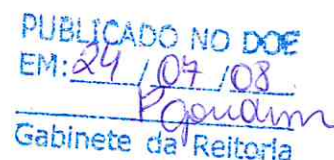 PUBLICADO NO DOE
EM: 24 / 07 / 08
Gabinete da Reitoria